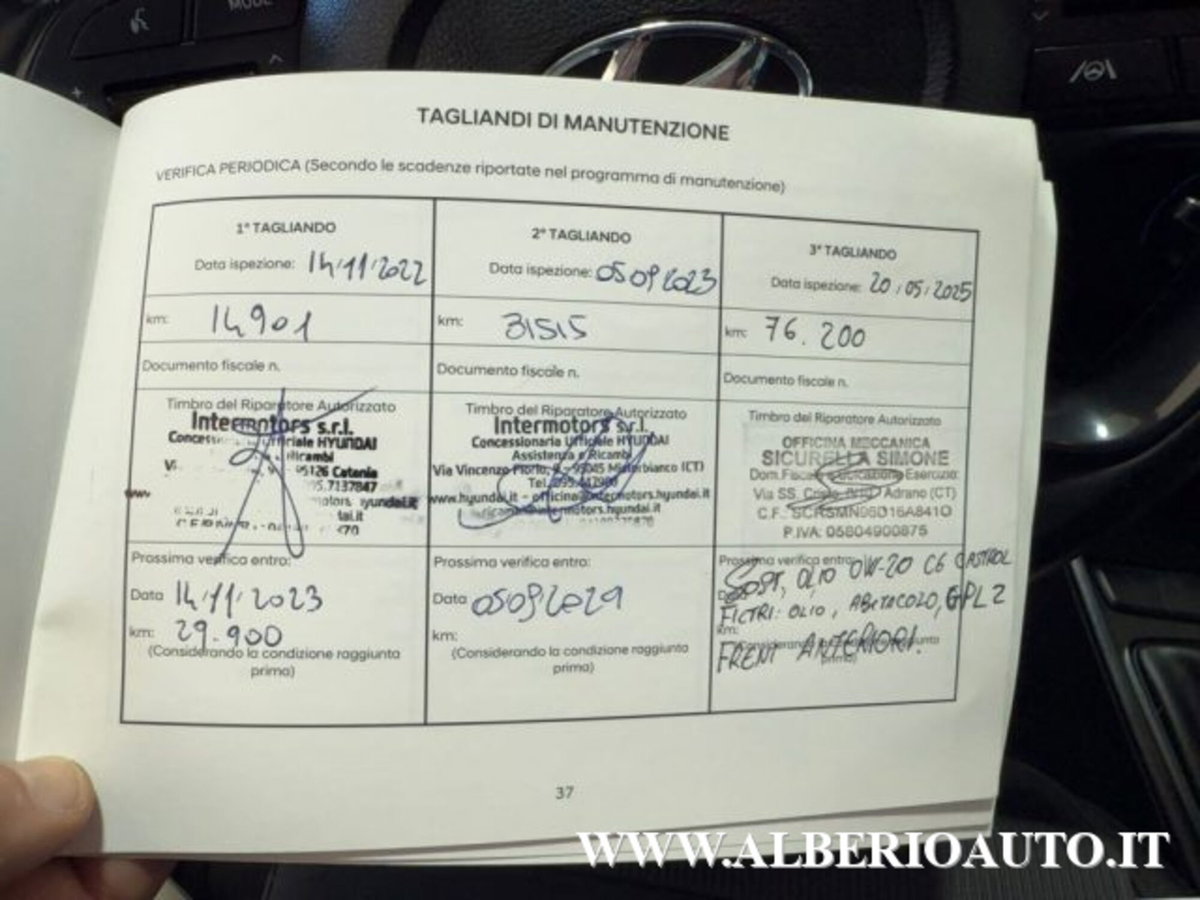 MODE
TAGLIANDI DI MANUTENZIONE
VERIFICA PERIODICA (Secondo le scadenze riportate nel programma di manutenzione)
1° TAGLIANDO
Data ispezione: 14/11/2022
km: 14901
Documento fiscale n.
Timbro del Riparatore Autorizzato
Intermotors s.r.l.
HYUNDAI
95126 Catania
Prossima verifica entro:
Data 14/11/2023
km: 29.900
(Considerando la condizione raggiunta
prima)
2° TAGLIANDO
Data ispezione: 05092023
km: 31515
Documento fiscale n.
Timbro del Riparatore Autorizzato
Intermotors s.r.l.
Concessionaria Ufficiale HYUNDAI
Assistenza e Ricambi
Via Vincenzo Florio, - 95045 Misterbianco (CT)
Tel.
www.hyundai.it - officina@intermotors.hyundai.it
ricambi@intermotors.hyundai.it
Prossima verifica entro:
Data
km:
(Considerando la condizione raggiunta
prima)
3° TAGLIANDO
Data ispezione: 20/05/2025
km: 76.200
Documento fiscale n.
Timbro del Riparatore Autorizzato
OFFICINA MECCANICA
SICURELLA SIMONE
Dom.Fiscale Esercizio:
Via SS. Adrano (CT)
C.F.
P.IVA: 05804900875
Prossima verifica entro:
SOST, OLIO 0W-20 C6 CASTROL
FILTRI: OLIO, ABITACOLO, GPL 2
km:
FRENI ANTERIORI.
37
WWW.ALBERIOAUTO.IT